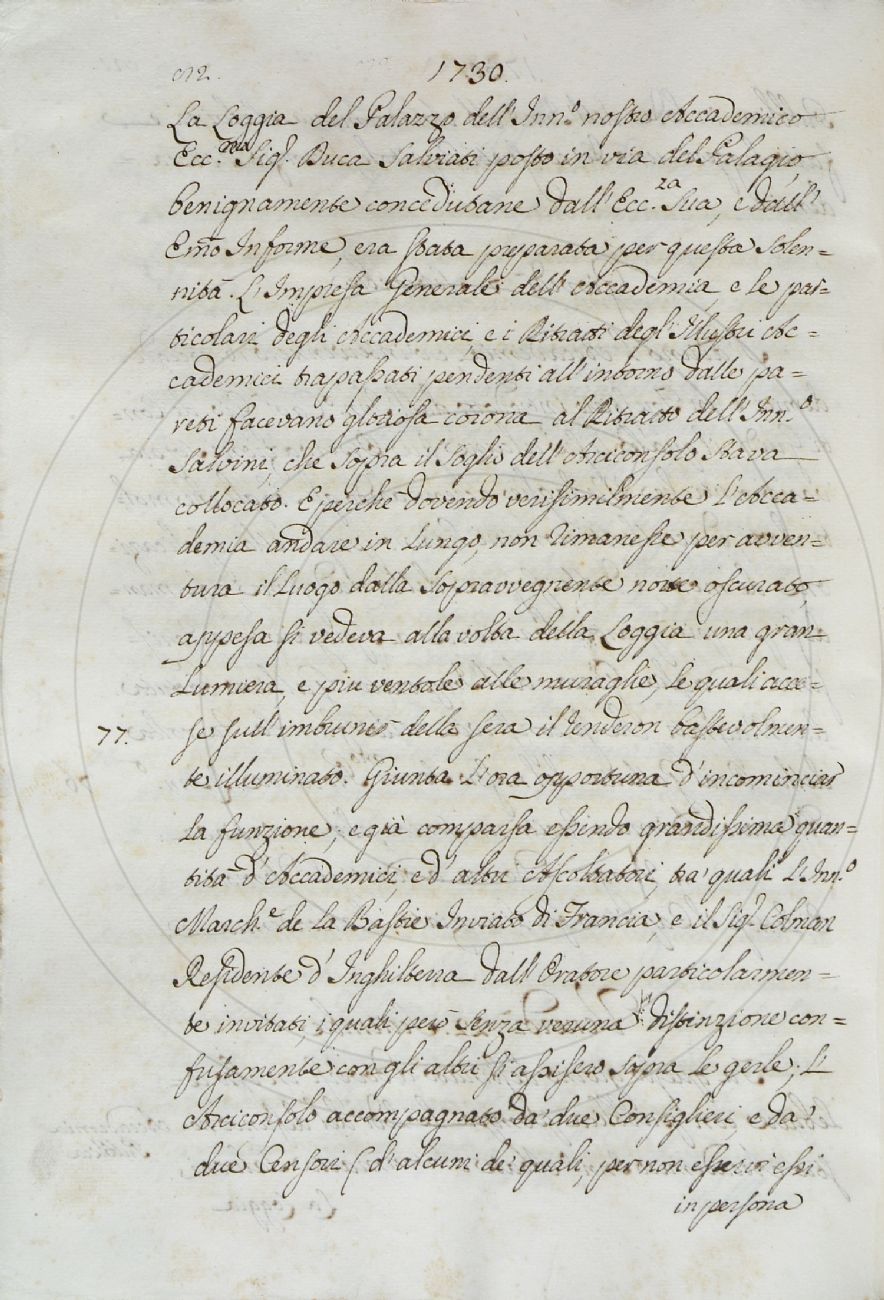 1730.
La Loggia del Palazzo dell' Inn.º nostro Accademico
Ecc.mo Sig.r Duca Salviati posto in via del Palagio,
benignamente concedutane dall' Ecc.za Sua, e dall'
Emo Informe, era stata preparata per questa solen=
nità. L' Impresa Generale dell' Accademia, e le par=
ticolari degli Accademici, e i Ritratti degl' Illustri Ac=
cademici trapassati pendenti all' intorno dalle pa=
reti facevano gloriosa corona al Ritratto dell' Inn.º
Salvini, che sopra il soglio dell' Arciconsolo stava
collocato. E perchè dovendo verisimilmente l' Acca=
demia andare in lungo, non rimanesse per avven=
tura il luogo dalla sopravvegnente notte oscurato,
appesa si vedeva alla volta della Loggia una gran
Lumiera, e più ventole alle muraglie, le quali acce=
77.
se sull' imbrunir della sera il renderon bastevolmen=
te illuminato. Giunta l' ora opportuna d' incominciar
la funzione, e già comparsa essendo grandissima quan=
tità d' Accademici, ed altri Ascoltatori, tra' quali l' Inn.º
March.e de la Bastie Inviato di Francia, e il Sig.r Colman
Residente d' Inghilterra dall' Oratore particolarmen=
te invitati, i quali però senza veruna distinzione con=
fusamente con gli altri si assisero sopra le gerle; L'
Arciconsolo accompagnato da' due Consiglieri, e da'
due Censori ( d' alcuni de' quali, per non esservi essi
in persona